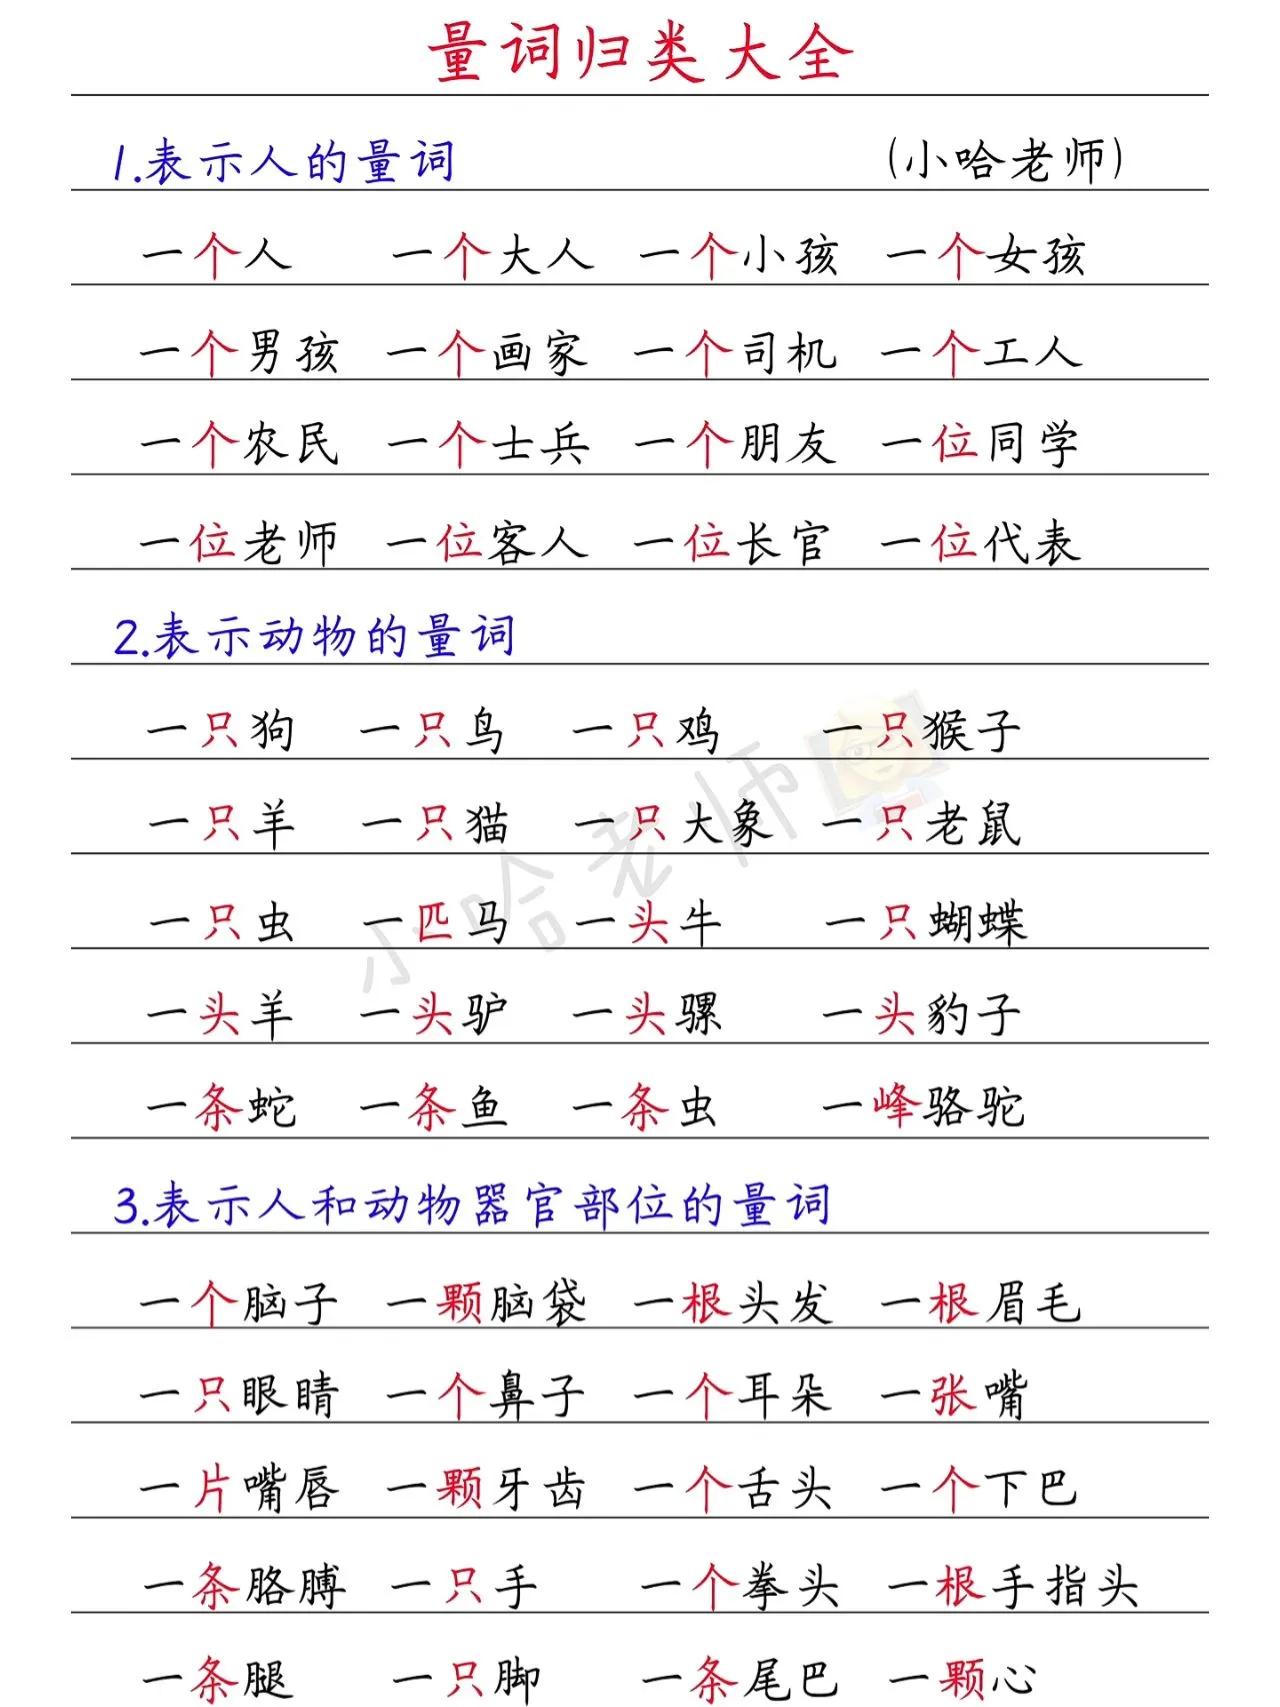 量词归类大全
1.表示人的量词 (小哈老师)
一个人 一个大人 一个小孩 一个女孩
一个男孩 一个画家 一个司机 一个工人
一个农民 一个士兵 一个朋友 一位同学
一位老师 一位客人 一位长官 一位代表
2.表示动物的量词
一只狗 一只鸟 一只鸡 一只猴子
一只羊 一只猫 一只大象 一只老鼠
一只虫 一匹马 一头牛 一只蝴蝶
一头羊 一头驴 一头骡 一头豹子
一条蛇 一条鱼 一条虫 一峰骆驼
小哈老师
3.表示人和动物器官部位的量词
一个脑子 一颗脑袋 一根头发 一根眉毛
一只眼睛 一个鼻子 一个耳朵 一张嘴
一片嘴唇 一颗牙齿 一个舌头 一个下巴
一条胳膊 一只手 一个拳头 一根手指头
一条腿 一只脚 一条尾巴 一颗心